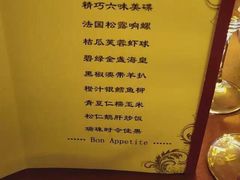 精巧六味美碟
法国松露响螺
桔瓜芙蓉虾球
碧绿金盏海皇
黑椒澳带羊扒
橙汁银鳕鱼柳
青豆仁糯玉米
松仁鹅肝炒饭
瑞珠时令佳果
Bon Appetite